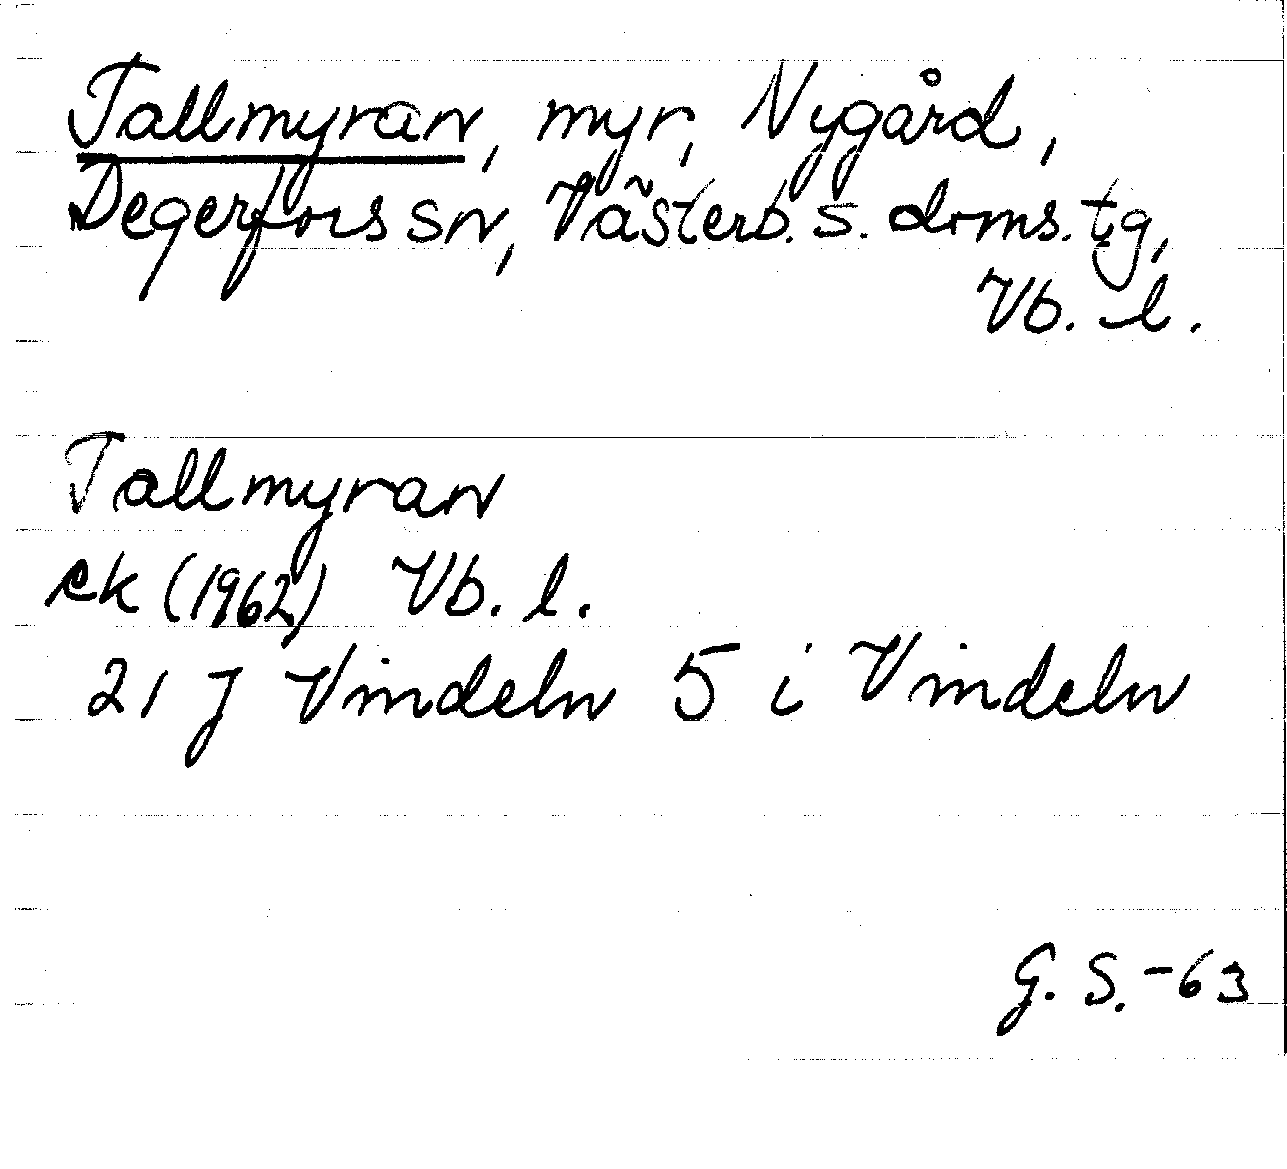 Tallmyran, myr, Nygård,
Degerfors sn, Västerb. s. doms. tg,
Vb. l.
Tallmyran
ek (1962) Vb. l.
21 J Vindeln 5 i Vindeln
G. S. -63